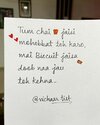 Tum chai jaisi
mohabbat toh karo,
mai Biscuit jaisa
doob naa jau
toh kehna.